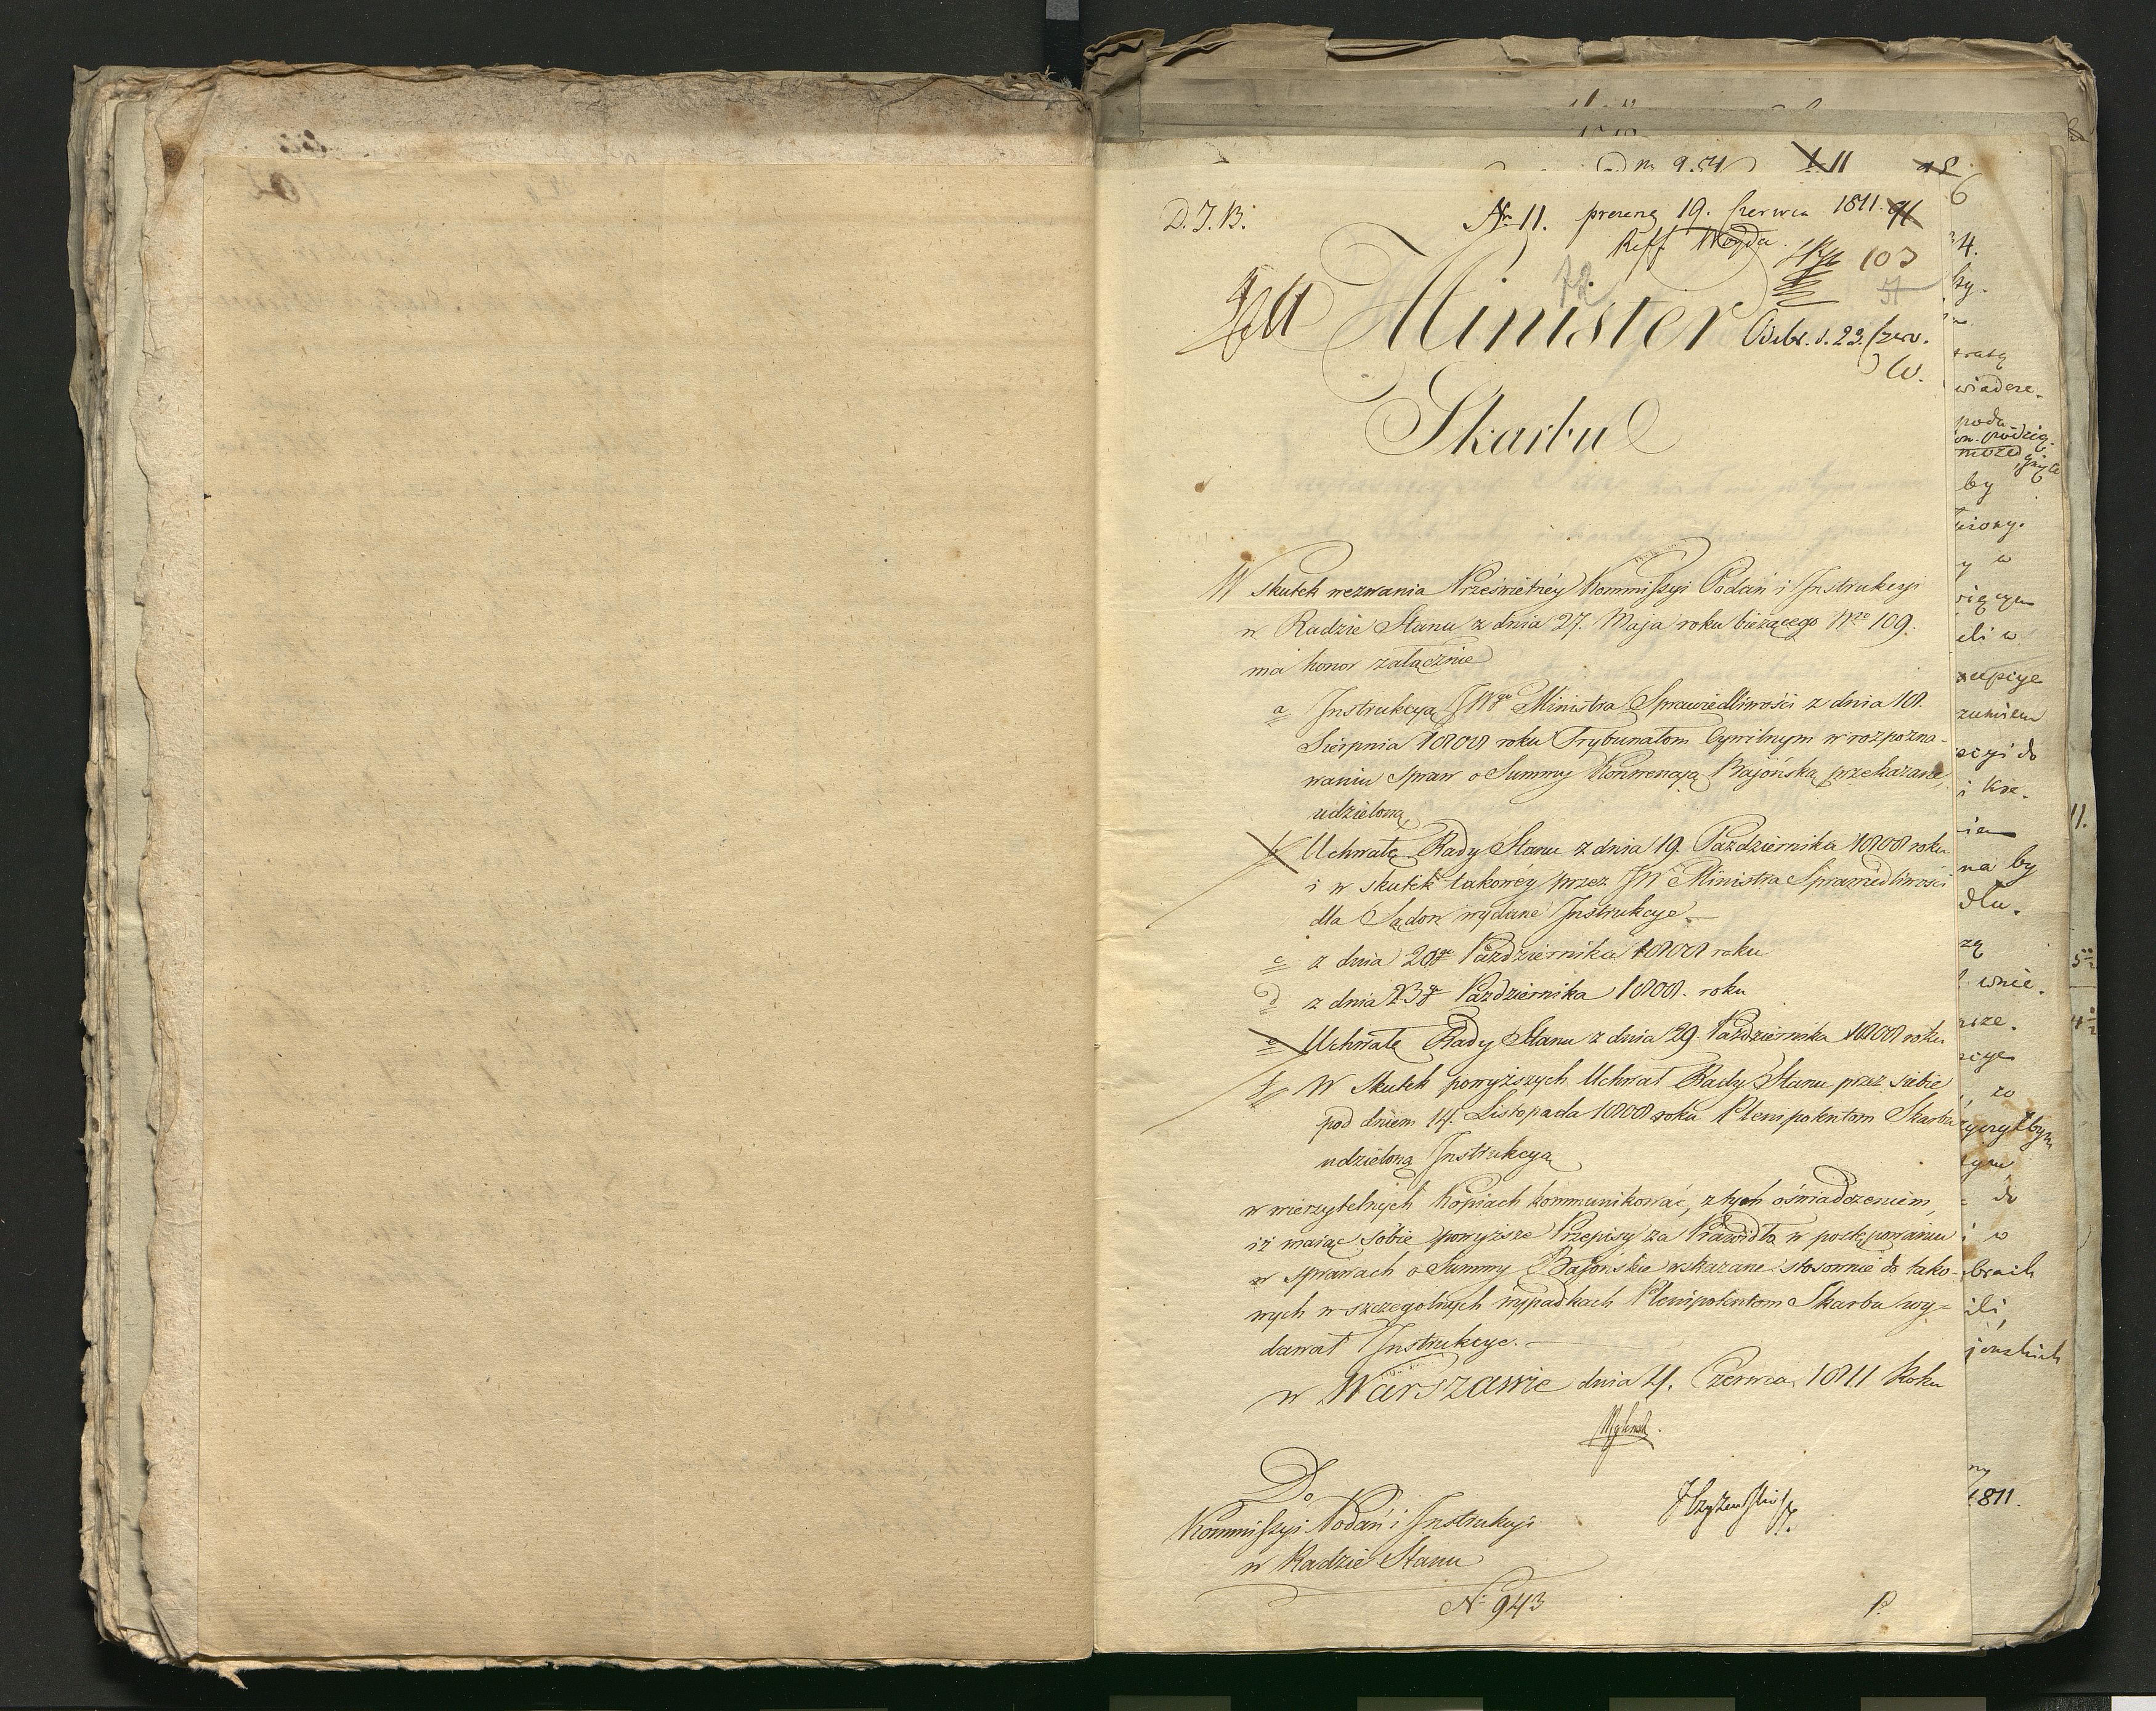 D. J. B.
№ 11. prezen 19. Czerwca 1811.
Reff. Woyda.
103
Minister
Odebr. d. 23. Czerw.
W.
Skarbu
W skutek wezwania Prześwietnéy Kommissyi Podań i Instrukcyi
w Radzie Stanu z dnia 27. Maja roku bieżącego Nro 109.
ma honor załącznie
a Instrukcyą JWgo Ministra Sprawiedliwości z dnia 18.
Sierpnia 1808 roku Trybunałom Cywilnym w rozpozna-
waniu spraw o Summy Konwencyą Bajońską przekazane,
udzieloną
b Uchwałę Rady Stanu z dnia 19. Pazdziernika 1808 roku
i w skutek takowey przez JW Ministra Sprawiedliwości
dla Sądow wydane Instrukcye
c z dnia 20go Pazdziernika 1808 roku
d z dnia 23g Pazdziernika 1808. roku
e Uchwałę Rady Stanu z dnia 29. Pazdziernika 1808 roku
f W Skutek powyższych Uchwał Rady Stanu przez siebie
pod dniem 14. Listopada 1808 roku Plenipotentom Skarbu
udzieloną Instrukcyą
w wierzytelnych Kopiach kommunikować, z tych oświadczeniem,
iż maiąc sobie powyższe Przepisy za Prawidła w postępowaniu
w sprawach o Summy Bajońskie wskazane stosownie do tako-
wych w szczegolnych wypadkach Plenipotentom Skarbu wy-
dawał Instrukcye.
w Warszawie dnia 4. Czerwca 1811 Roku
Do
Kommissyi Podań i Instrukcyi
w Radzie Stanu
№ 943
P.
6
4.
wiadcze-
podu-
by
y w
ili w
zumiem
ecyi do
i kre-
na by
dlu-
zą
wnie-
cye
do
i w
ili,
1811.